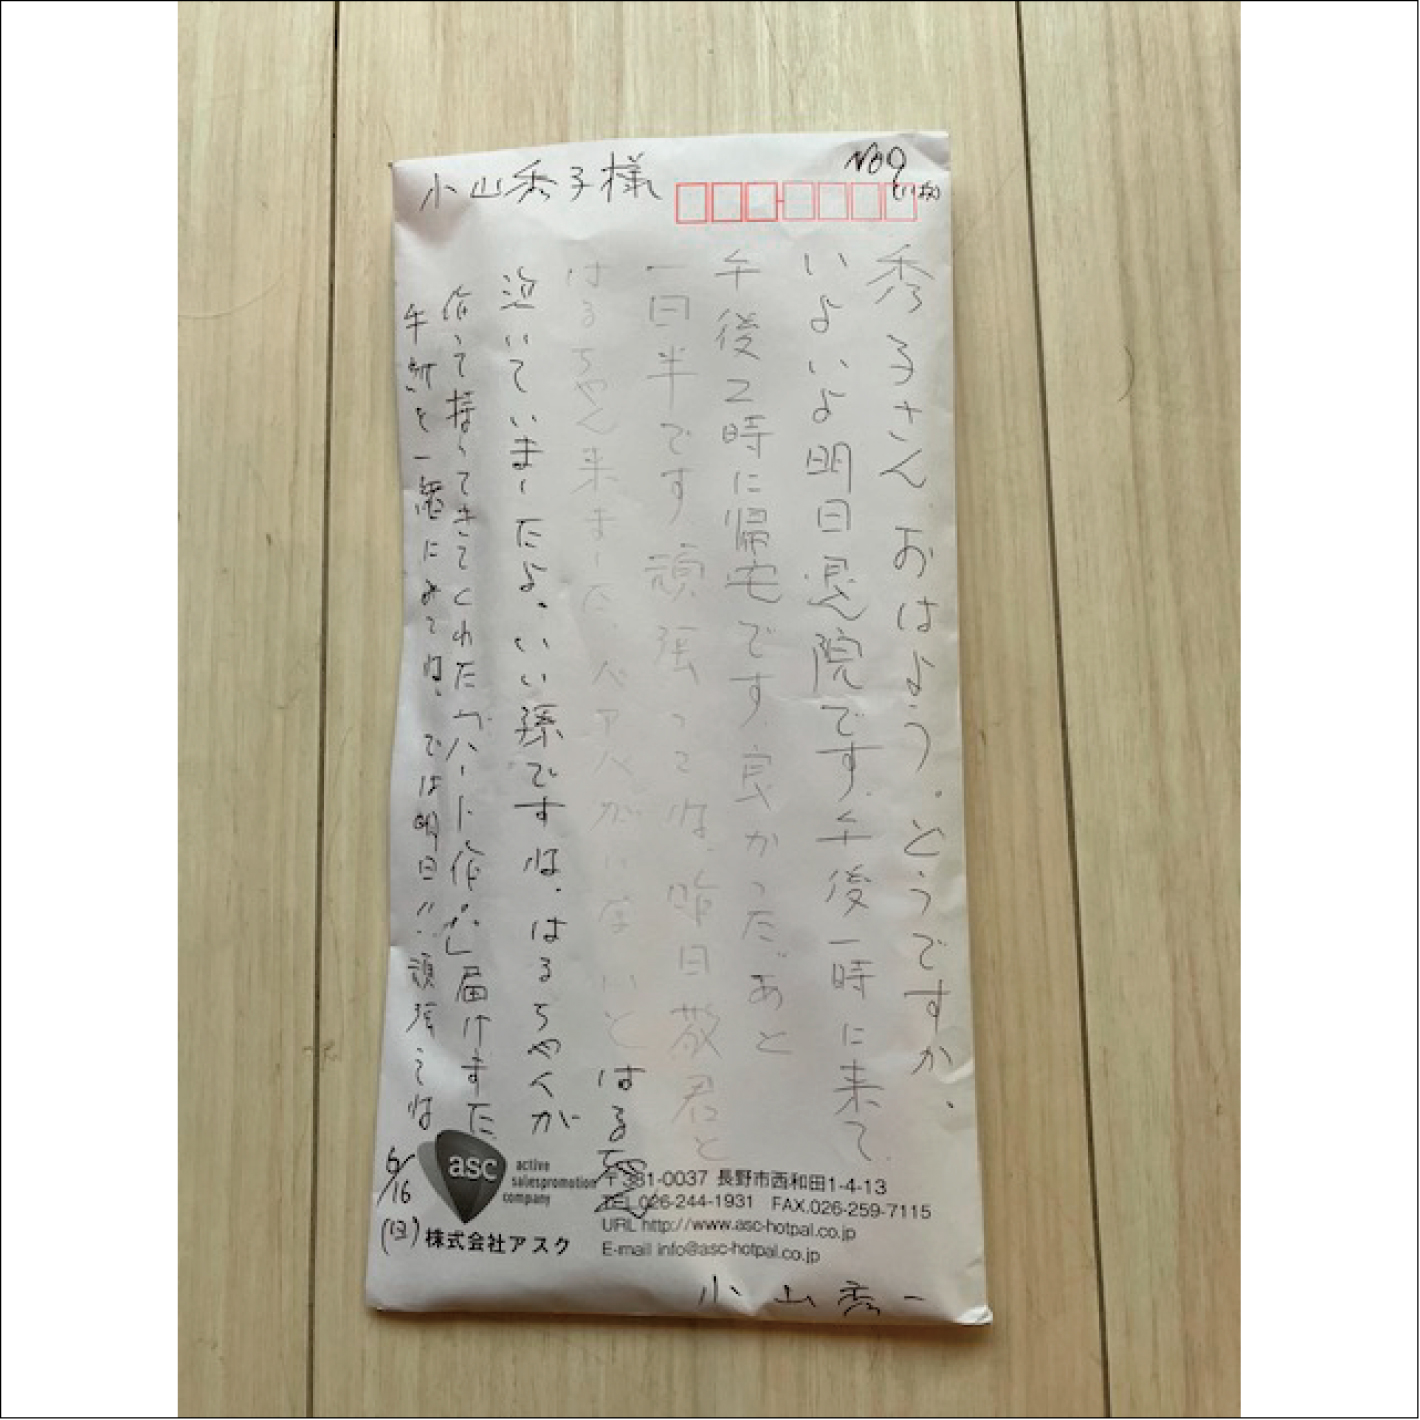 小山秀子様
No9
秀子さん、おはよう。どうですか、
いよいよ明日退院です。午後一時に来て、
午後2時に帰宅です。良かった。あと
一日半です。頑張ってね。昨日敬君と
はるちゃん来ました。ベアベがいないとはるちゃん
泣いていましたよ。いい孫ですね。はるちゃんが
作って持ってきてくれた「ハート作品」届けました
午前を一緒にみてね。では明日!!頑張ってね
6/16
(日)
asc
active
salespromotion
company
株式会社アスク
〒381-0037 長野市西和田1-4-13
TEL.026-244-1931 FAX.026-259-7115
URL http://www.asc-hotpal.co.jp
E-mail info@asc-hotpal.co.jp
小山秀一